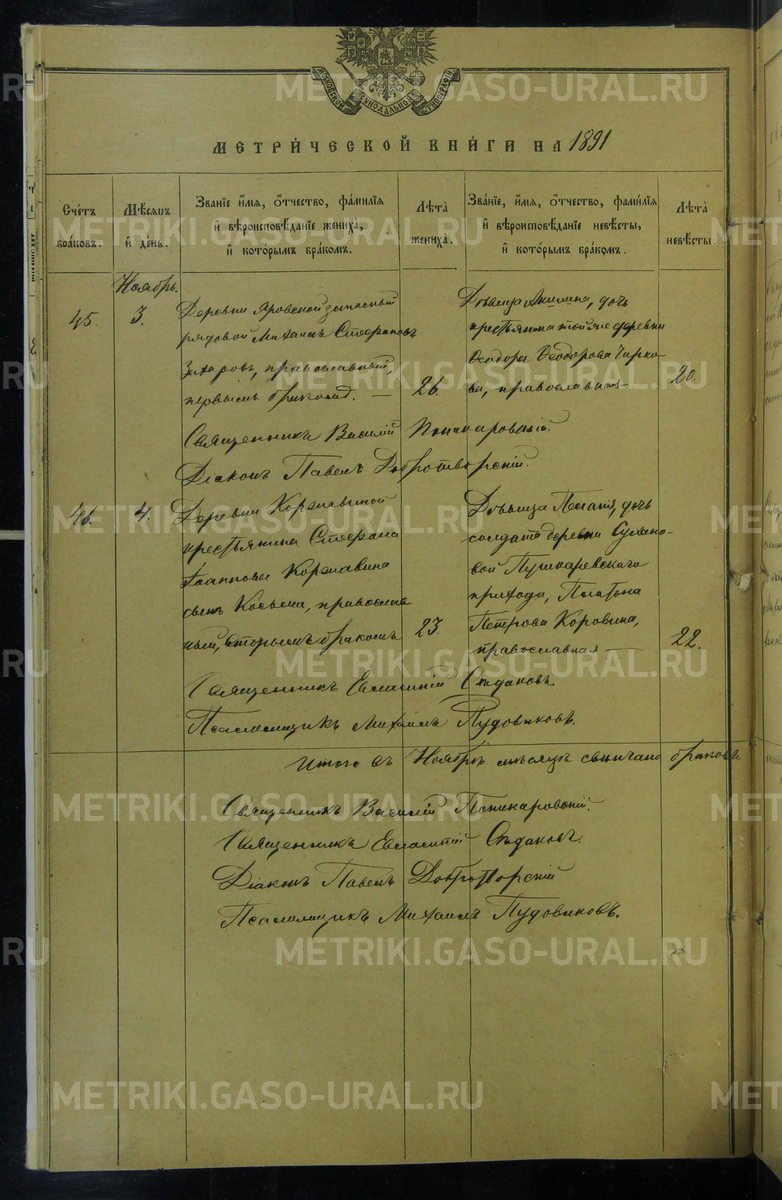 МОСКОВСКОЙ СѴНОДАЛЬНОЙ ТИПОГРАФІИ
МЕТРИ́ЧЕСКОЙ КНИ́ГИ НА 1891
Сче́тъ бра́ковъ.
Мѣ́сяцъ и҆ де́нь.
Зва́нїе и҆́мя, ѻ҆́тчество, фамѵ́лїя
и҆ вѣроисповѣ́данїе жениха̀,
и҆ кото́рымъ бра́комъ.
Лѣ́та жениха̀.
Зва́нїе, и҆́мя, ѻ҆́тчество, фамѵ́лїя
и҆ вѣроисповѣ́данїе невѣ́сты,
и҆ кото́рымъ бра́комъ.
Лѣ́та невѣ́сты.
Ноябрь.
45.
3.
Деревни Яровской запасный
рядовой Михаилъ Стефановъ
Захаровъ, православный,
первымъ бракомъ. —
26.
Дѣвица Акилина, дочь
крестьянина той же деревни
Ѳеодора Ѳеодорова Чирко-
ва, православная —
20.
Священникъ Василій Пономаревскій.
Діаконъ Павелъ Добротворскій.
46.
4.
Деревни Коржавиной
крестьянина Стефана
Іоаннова Коржавина
сынъ Косьма, православ
ный, вторымъ бракомъ
23.
Дѣвица Пелагія, дочь
солдата деревни
Пушкаревскаго
прихода, Платона
Петрова Коровина,
православная —
22.
Священникъ Евлампій Сѣдаковъ.
Псаломщикъ Михаилъ Пудовиковъ.
Итого въ Ноябрѣ мѣсяцѣ свѣнчано браковъ
Священникъ Василій
Священникъ Евлампій Сѣдаковъ.
Діаконъ Павелъ Добротворскій
Псаломщикъ Михаилъ Пудовиковъ.
METRIKI.GASO-URAL.RU